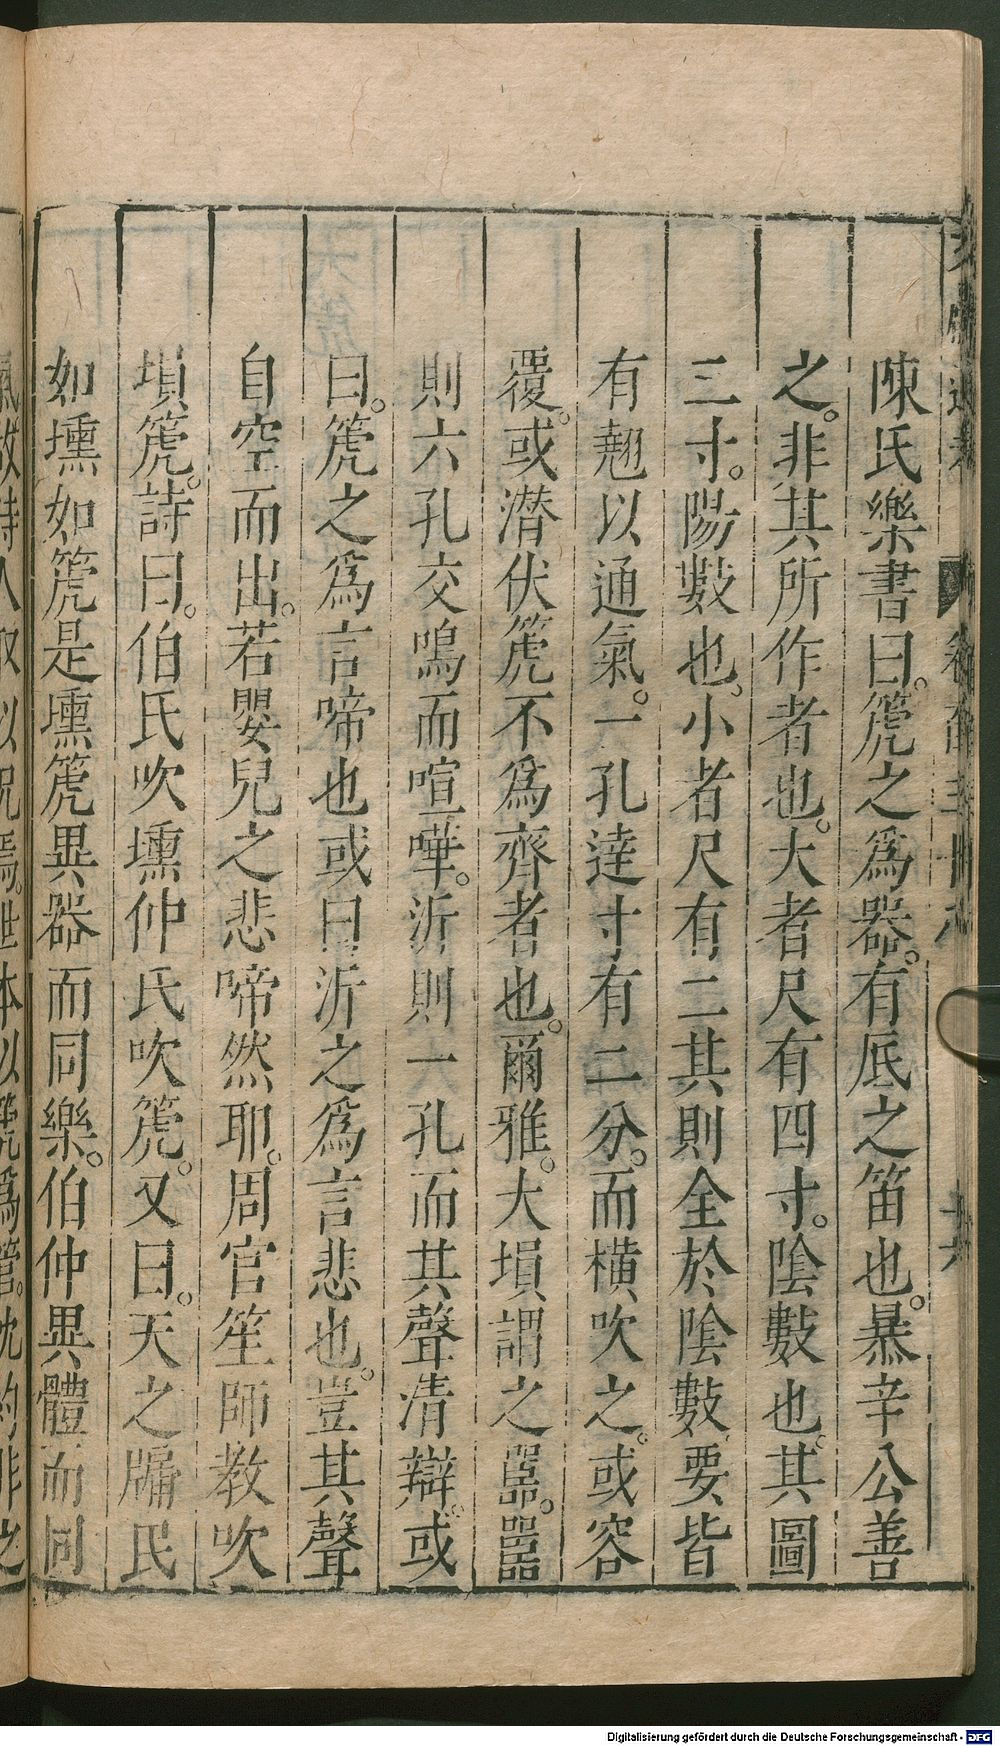 陳氏樂書曰。箎之爲器。有底之笛也。暴辛公善
之。非其所作者也。大者尺有四寸。陰數也。其圖
三寸。陽數也。小者尺有二其則全於陰數。要皆
有翹以通氣。一孔達寸有二分。而橫吹之。或容
覆。或潜伏箎不爲齊者也。爾雅。大塤謂之嚚。嚚
則六孔交鳴而喧嘩。沂則一孔而其聲清辯。或
曰。箎之爲言啼也或曰沂之爲言悲也。豈其聲
自空而出。若嬰兒之悲啼然耶。周官笙師教吹
塤箎。詩曰。伯氏吹壎仲氏吹箎。又曰。天之牖民
如壎如箎是壎箎異器而同樂。伯仲異體而同
Digitalisierung gefördert durch die Deutsche Forschungsgemeinschaft - DFG